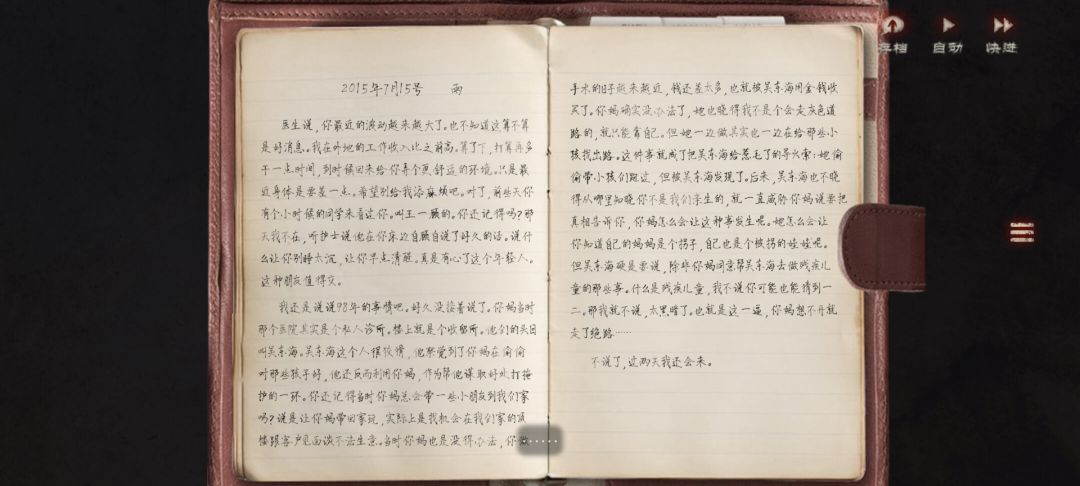 2015年7月15号 雨
医生说，你最近的波动越来越大了。也不知道这算不算
是好消息。我在外地的工作收入比之前高。算了下，打算再多
干一点时间，到时候回来给你弄个更舒适的环境。只是最
近身体是要差一点。希望别给我添麻烦吧。对了，前些天你
有个小时候的同学来看过你。叫王一顾的。你还记得吗？那
天我不在，听护士说他在你床边自顾自说了好久的话。说什
么让你别睡太沉，让你早点清醒。真是有心了这个年轻人。
这种朋友值得交。
我还是说说98年的事情吧。好久没接着说了。你妈当时
那个医院其实是个私人诊所。楼上就是个收留所。他们的头目
叫吴东海。吴东海这个人很狡猾，他察觉到了你妈在偷偷
对那些孩子好，他还反而利用你妈，作为帮他谋取好处打掩
护的一环。你还记得当时你妈总会带一些小朋友到我们家
吗？说是让你妈带回家玩，实际上是找机会在我们家的顶
楼跟客户见面谈不法生意。当时你妈也是没得办法，你做
手术的日子越来越近，我还差太多，也就被吴东海用金钱收
买了。你妈确实没办法了，她也晓得我不是个会走灰色道
路的，就只能靠自己。但她一边做其实也一边在给那些小
孩找出路。这件事就成了把吴东海给惹毛了的导火索：她偷
偷带小孩们跑过，但被吴东海发现了。后来，吴东海也不晓
得从哪里知晓你不是我们亲生的，就一直威胁你妈说要把
真相告诉你，你妈怎么会让这种事发生呢。她怎么会让
你知道自己的妈妈是个拐子，自己也是个被拐的娃娃呢。
但吴东海硬是要说，除非你妈同意帮吴东海去做残疾儿
童的那些事。什么是残疾儿童，我不说你可能也能猜到一
二。那我就不说，太黑暗了。也就是这一逼，你妈想不开就
走了绝路……
不说了，过两天我还会来。
存档 自动 快进